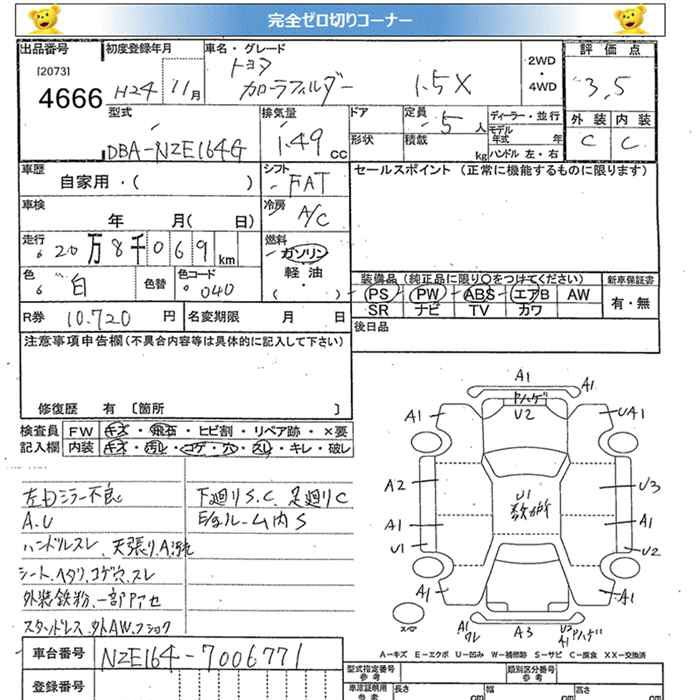 完全ゼロ切りコーナー
出品番号
[2073]
4666
初度登録年月
H24 11月
車名・グレード
トヨタ
カローラフィルダー 1.5X
2WD
・
4WD
評価点
3.5
外装 内装
C C
型式
DBA-NZE164G
排気量
1.49 cc
ドア
形状
定員 5人
積載 kg
ディーラー・並行
モデル年式 年
ハンドル 左・右
車歴
自家用・( )
シフト
FAT
セールスポイント (正常に機能するものに限ります)
車検
年 月( 日)
冷房
A/C
走行
20万8千069 km
燃料
ガソリン
軽油
( ・ )
色
白
色替
色コード
040
装備品 (純正品に限り○をつけてください)
新車保証書
PS PW ABS エアB AW
SR ナビ TV カワ
有・無
R券 10.720 円
名変期限 月 日
後日品
注意事項申告欄 (不具合内容等は具体的に記入して下さい)
修復歴 有 〔箇所 〕
検査員 FW キズ・飛石・ヒビ割・リペア跡・×要
記入欄 内装 キズ・汚レ・コゲ・穴・スレ・キレ・破レ
左ドミラー不良
A.U
ハンドルスレ、天張りA.汚
シート.ヘタリ.コゲ穴.スレ
外装鉄粉、一部Pアセ
スタッドレス.外AW.フショク
下廻りS.C、足廻りC
E/gルーム内S
A1
A1
A1
Pハゲ
U2
UA1
A2
U3
U1
数カ所
A1
A1
U1
U2
A1
A1
スペア
A1
ワレ
A3
U2
A1
Pハゲ
A-キズ E-エクボ U-凹み W-補修跡 S-サビ C-腐食 XX-交換済
車台番号 NZE164-7006771
登録番号
型式指定番号
参考
類別区分番号
参考
車庫証明用
参考
長さ cm
幅 cm
高さ cm